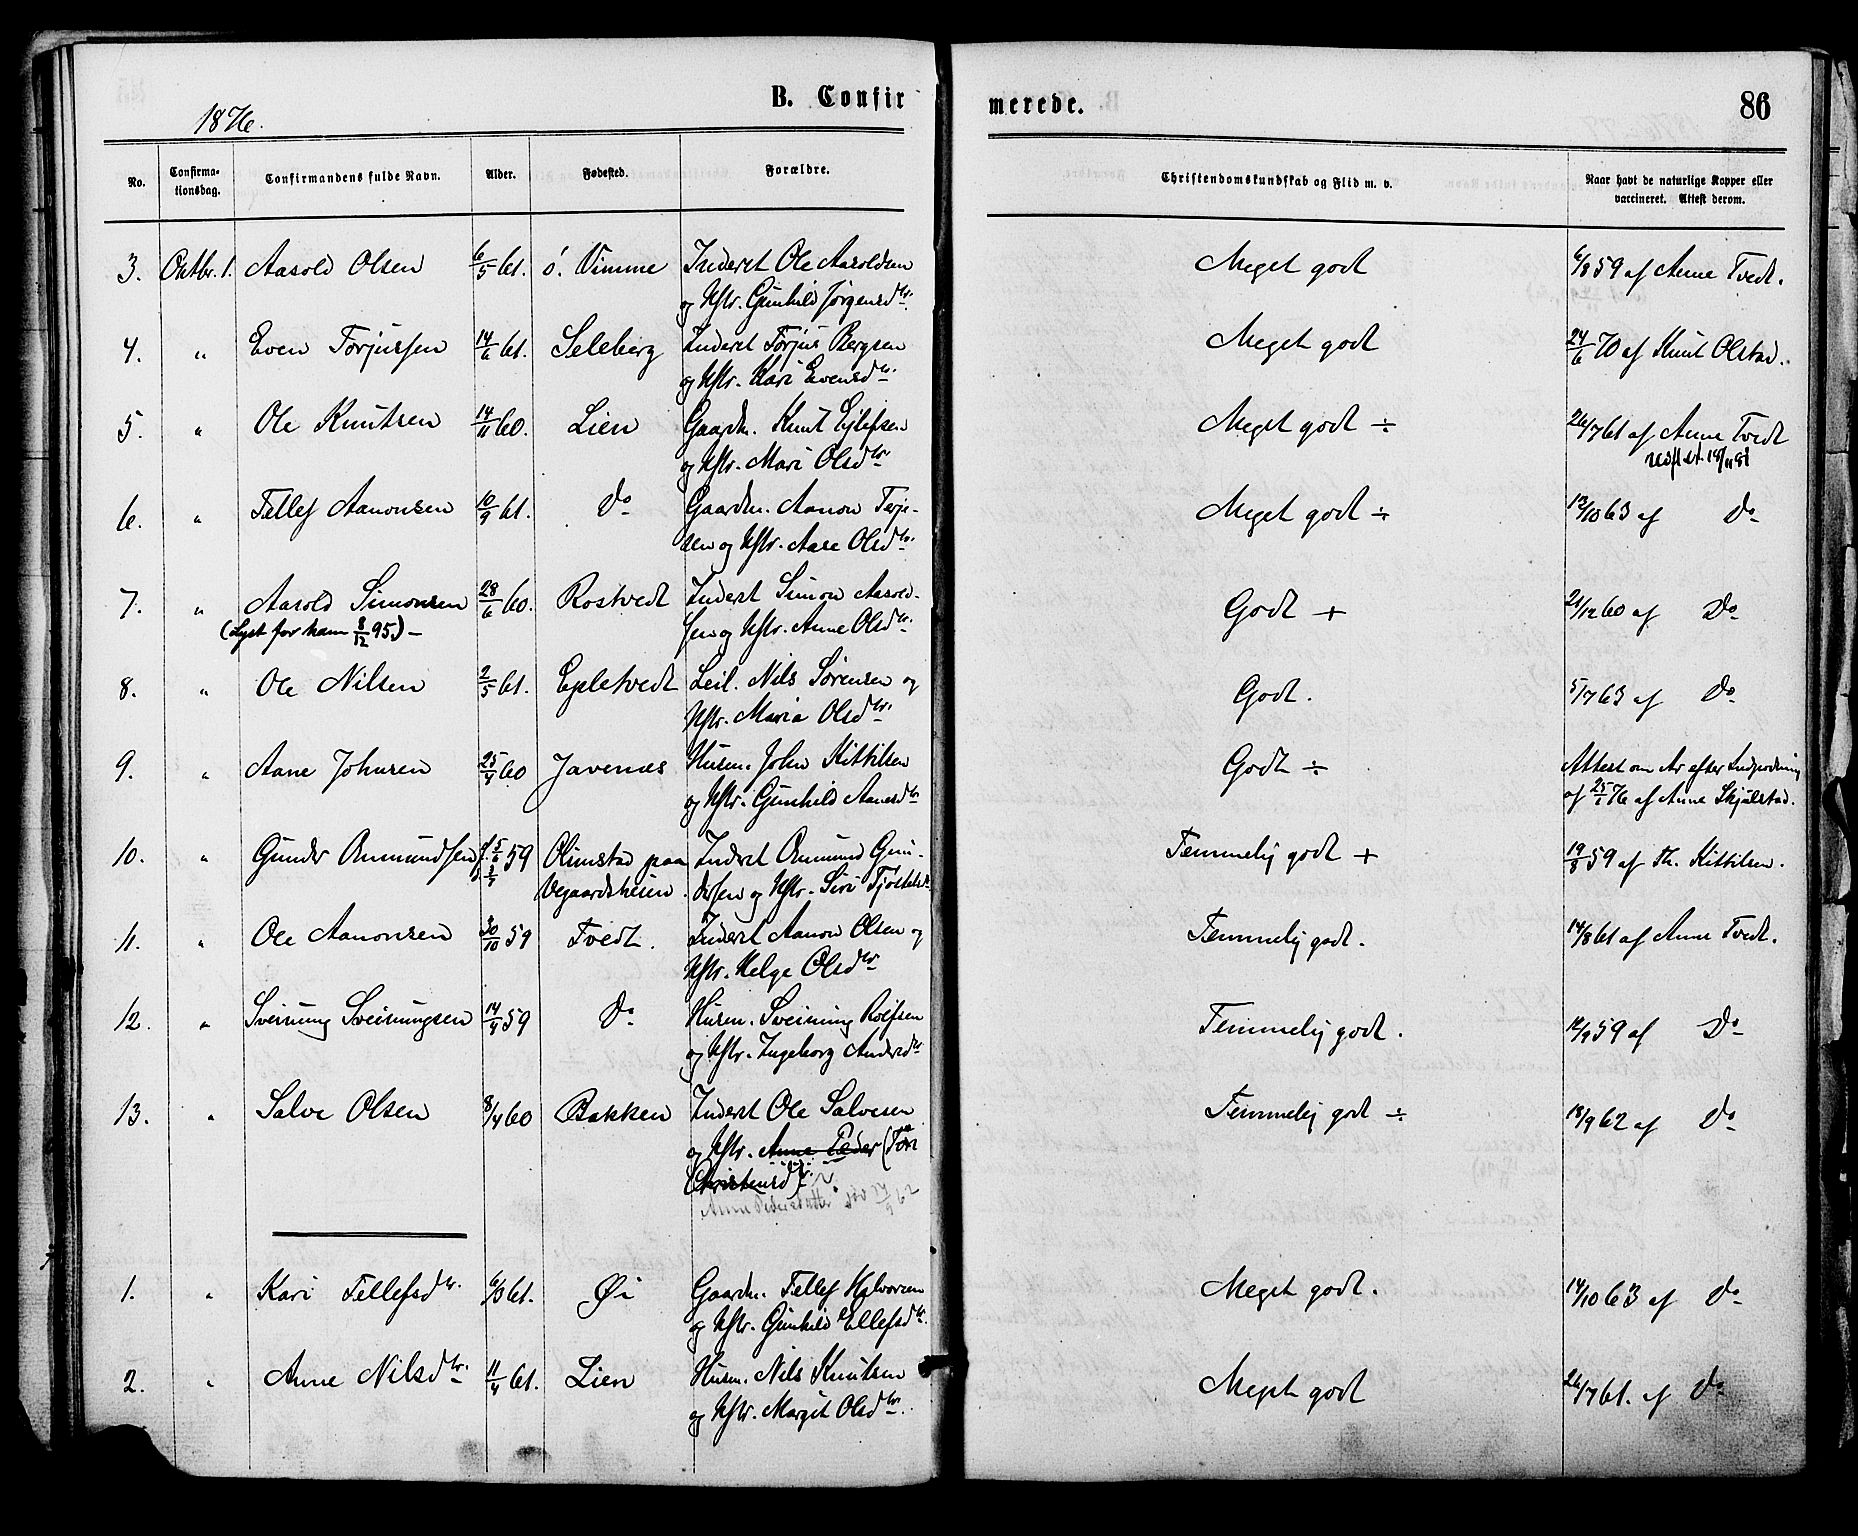 B. Confirmerede.
86
1876.
No. Confirmationsdag. Confirmandens fulde Navn. Alder. Fødested. Forældre. Christendomskundskab og Flid m. v. Naar havt de naturlige Kopper eller vaccineret. Attest derom.
3. Oktbr. 1. Aasold Olsen 6/5 61. ó. Vimme Inderst Ole Aasoldsen Meget godt 6/8 59 af Anne Tvedt.
og Hstr. Gunhild Jørgensdtr.
4. " Even Torjussen 14/6 61. Seleberg Inderst Torjus Bergsen Meget godt 24/6 70 af Knut Olstad.
og Hstr. Kari Evensdtr.
5. " Ole Knutsen 14/11 60. Lien Gaardm. Knut Ejlefsen Meget godt ÷ 26/7 61 af Anne Tvedt
og Hstr. Mari Olsdtr.
6. " Tellef Aanonsen 10/9 61. Do Gaardm. Aanon Terje- Meget godt ÷ 13/10 63 af Do
sen og Hstr. Aase Olsdtr.
7. " Aasold Simonsen 28/6 60. Rostvedt Inderst Simon Aasold- Godt + 21/12 60 af Do
(Lyst for ham 8/12 95) – sen og Hstr. Anne Olsdtr.
8. " Ole Nilsen 2/5 61. Epletvedt Leil. Nils Sørensen og Godt. 5/7 63 af Do
Hstr. Maria Olsdtr.
9. " Aane Johnsen 25/4 60 Javenæs Husm. John Kittilsen Godt ÷ Attest om Ar efter Indpodning
og Hstr. Gunhild Aanesdtr. af 25/6 76 af Anne Skjælstad.
10. " Gunder Omundsen 59 Olimstad paa Inderst Omund Gun- Temmelig godt + 19/8 59 af Th. Kittilsen.
Vegaardsheien. dersen og Hstr. Siri
11. " Ole Aanonsen 30/10 59 Tvedt. Inderst Aanon Olsen og Temmelig godt. 14/8 61 af Anne Tvedt.
Hstr. Helge Olsdtr.
12. " Sveinung Sveinungsen 14/4 59 Do Husm. Sveinung Rolfsen Temmelig godt. 12/9 59 af Do
og Hstr. Ingeborg Andersdtr.
13. " Salve Olsen 8/4 60 Bakken Inderst Ole Salvesen Temmelig godt ÷ 18/9 62 af Do
og Hstr. Anne Peder (Tøri
Christensd)
Anne Pedersdatter
1. " Kari Tellefsdtr. 6/3 61. Øi Gaardm. Tellef Halvorsen Meget godt. 14/10 63 af Do
og Hstr. Gunhild Ellefsdtr.
2. " Anne Nilsdtr. 11/4 61. Lien Husm. Nils Knutsen Meget godt 26/7 61. af Do
og Hstr. Margit Olsdtr.